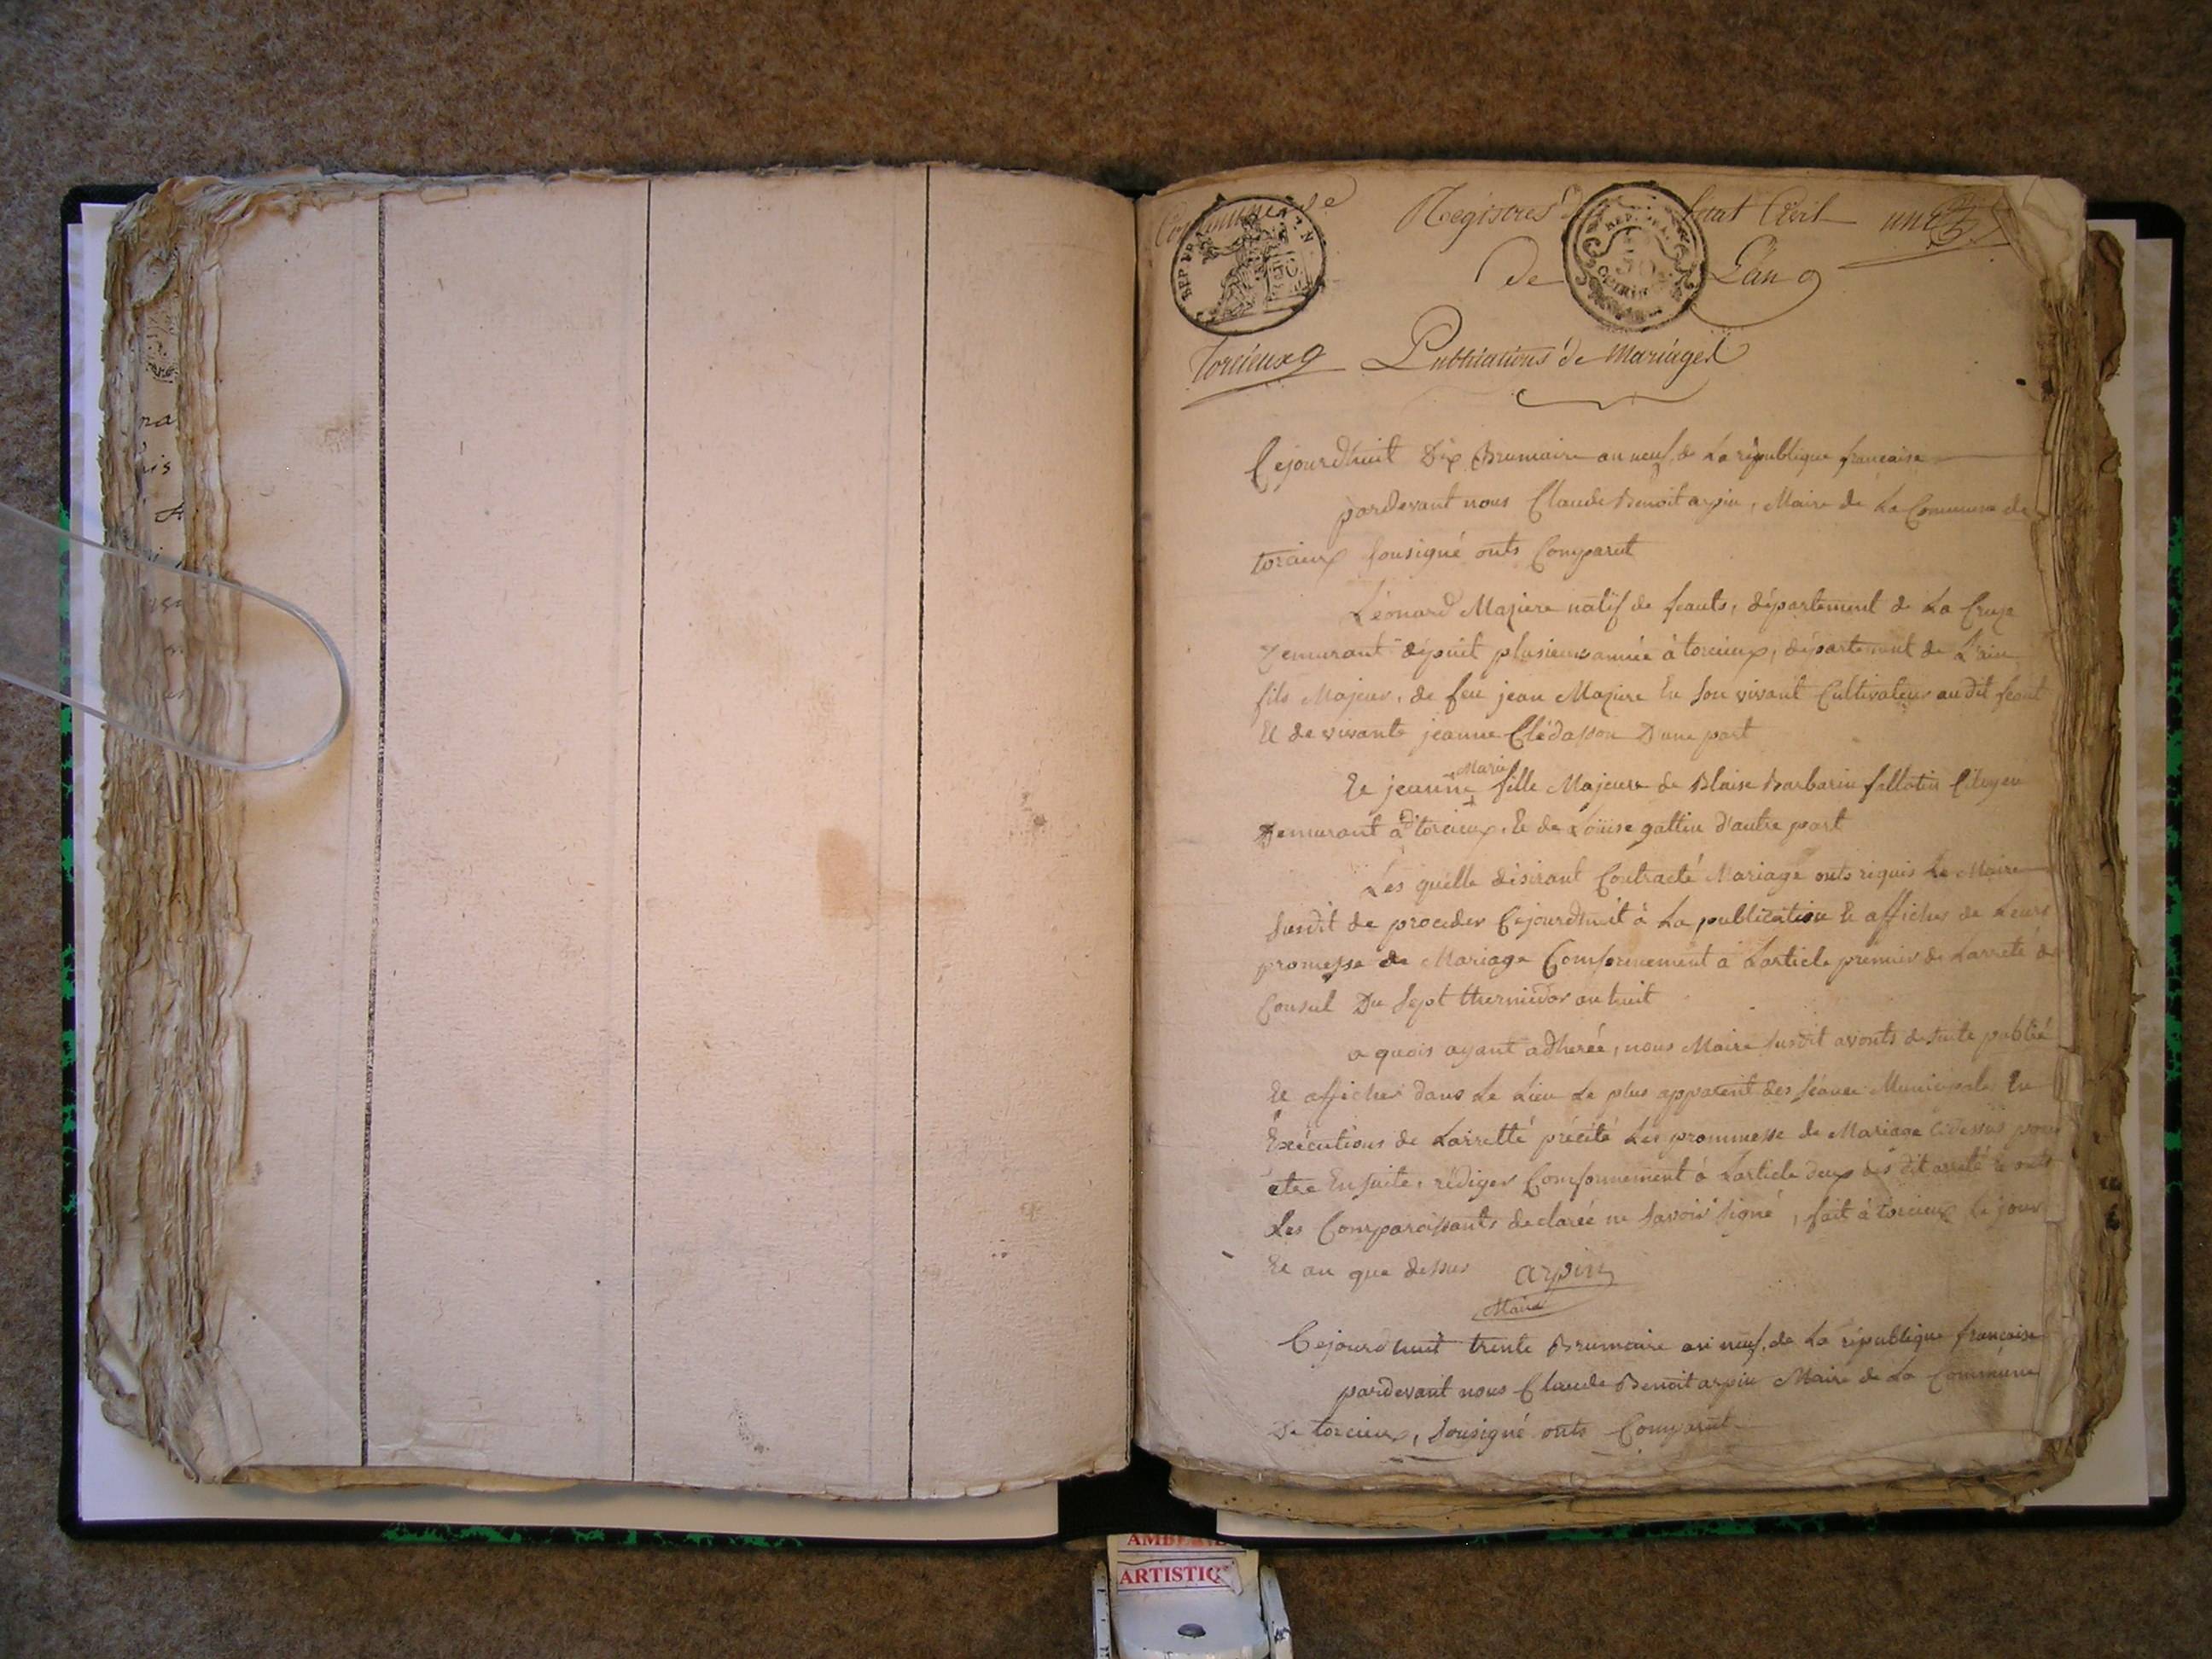 Commune de
Registres de l'état Civil une
de L'an 9
REP FRA
50
CENTIM
Torcieux 9 Publications de Mariages
Cejourdhuit Dix Brumaire an neuf de La république francaise
pardevant nous Claude Benoit arpin, Maire de La Commune de
torcieux sousigné onts Comparut
Léonard Maziere natif de feauts, département de La Cruze
Demurant dépuit plusieurs année à torcieux, département de L'ain
fils Majeur, de feu jean Maziere En son vivant Cultivateur audit feaut
Et de vivante jeanne Clédasson D'une part
Marie
Et jeanne fille Majeure de Blaise Barbarin fallatin Citoyen
Demurant à torcieux. Et de Loüise gattin d'autre part
Les quelle désirant Contracté Mariage onts réquis Le Maire
susdit de proceder Cejourdhuit à La publication Et affiches de Leurs
promesse de Mariage Conformement à Larticle premier de Larreté de
Consul Du sept thermidor an huit
a quois ayant adhereé, nous Maire susdit avonts de suite publié
Et afficher dans Le Lieu Le plus apparent des séance Municipale En
Exécutions de Larretté précité Les prommesse de Mariage cidessus pour
etre Ensuite, rédiger Conformement à Larticle deux des dit arreté Et onts
Les Comparoissants declareé ne savoir signé, fait à torcieux Le jour
Et an que dessus arpin
Maire
Cejourdhuit trente Brumaire an neuf, de La république francaise
pardevant nous Claude Benoit arpin Maire de La Commune
De torcieux, sousigné onts Comparut
ARTISTIQ